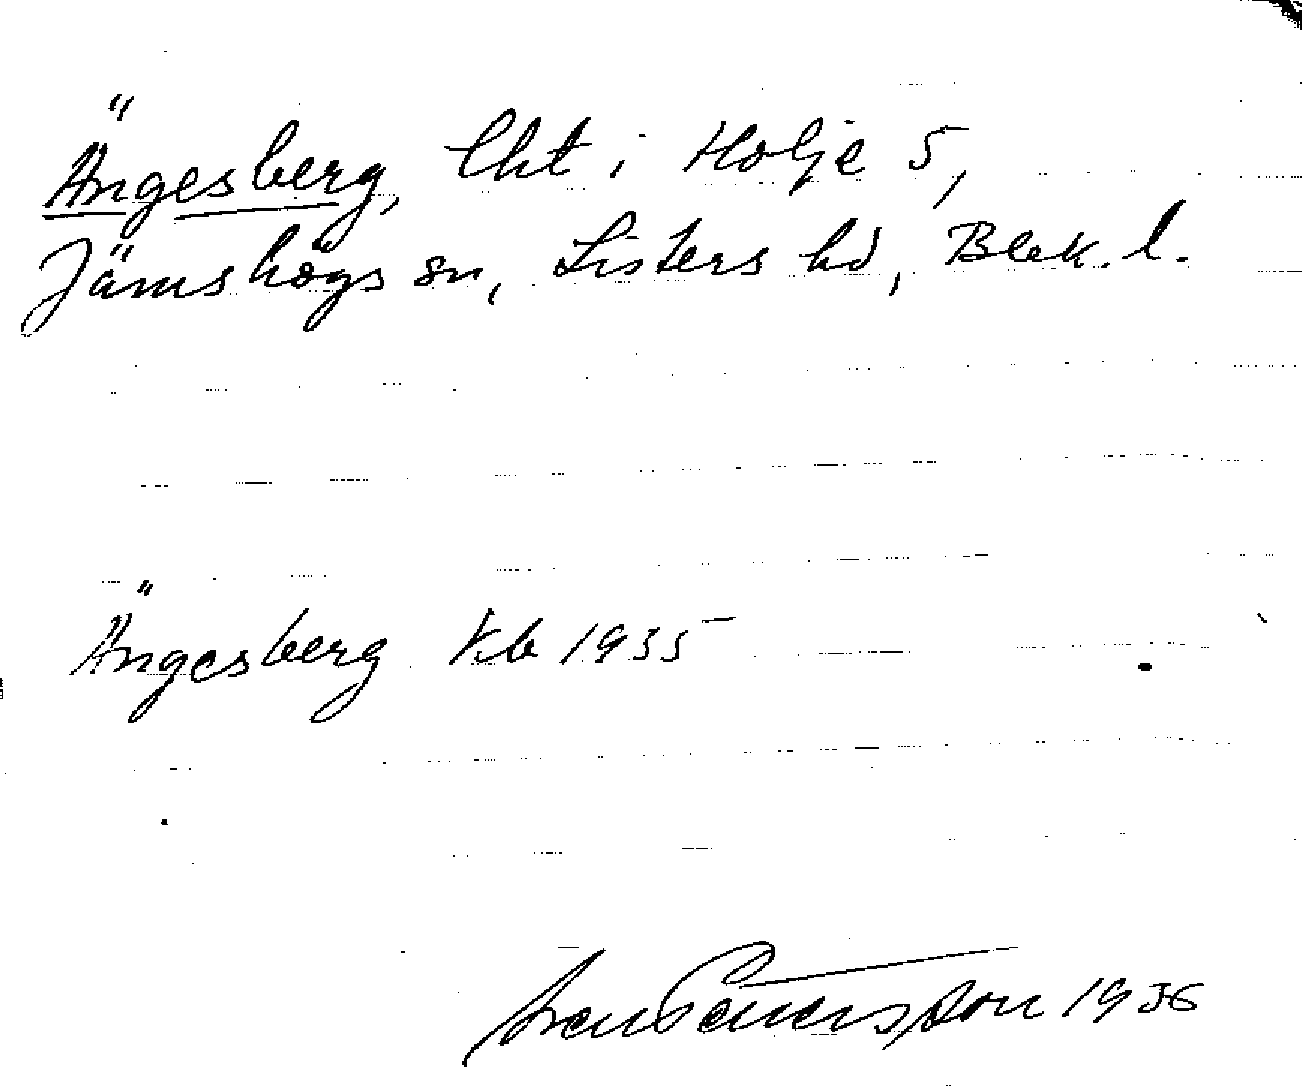 Ängesberg, lht i Holje 5,
Jämshögs sn, Listers hd, Blek. l.
Ängesberg Kb 1935
1936